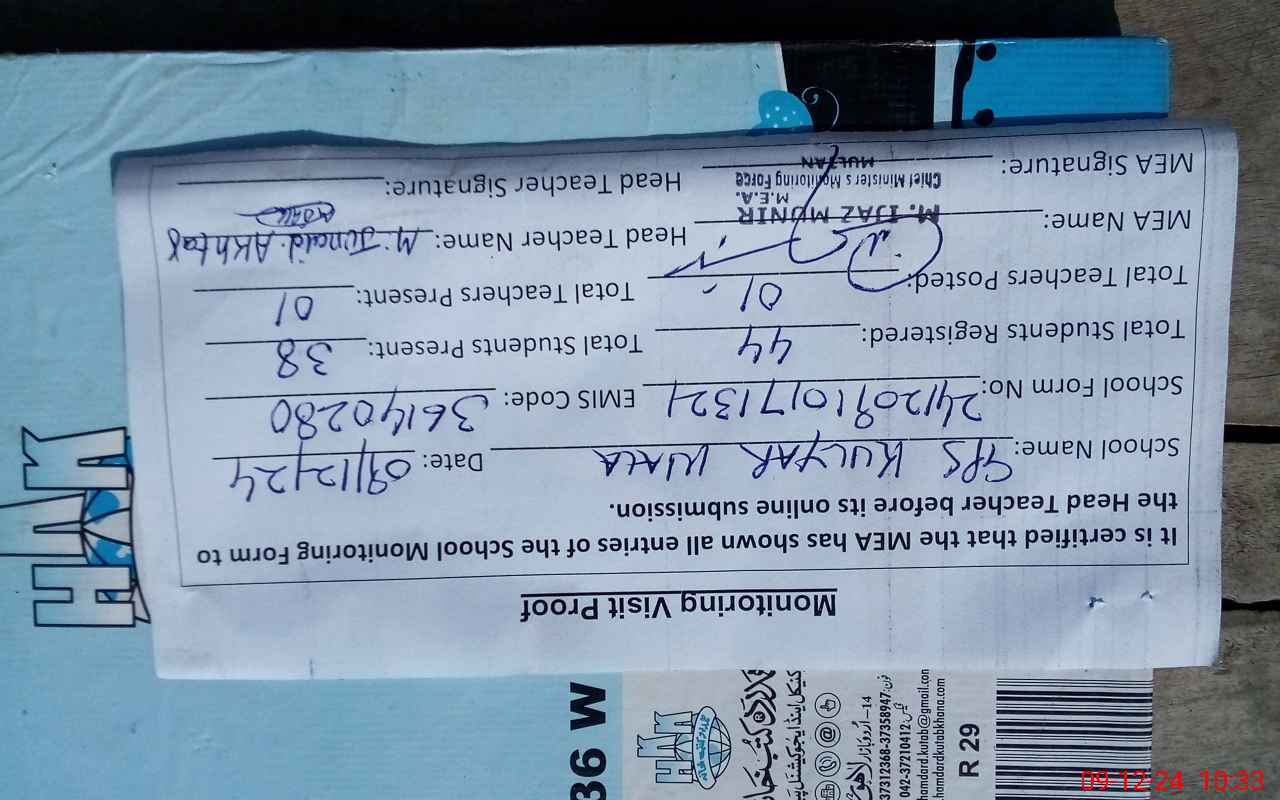 Monitoring Visit Proof
It is certified that the MEA has shown all entries of the School Monitoring Form to
the Head Teacher before its online submission.
School Name: GPS KULYAR WALA Date: 09/12/24
School Form No: 24120910171321 EMIS Code: 36140280
Total Students Registered: 44 Total Students Present: 38
Total Teachers Posted: 01 Total Teachers Present: 01
MEA Name: M. IJAZ MUNIR Head Teacher Name: M. Junaid. Akhtar
M.E.A.
Chief Minister's Monitoring Force
MULTAN
MEA Signature: Head Teacher Signature:
HKK
36 W
HKK
ہمدرد کتب خانہ
14-اردو بازار لاہور
فون: 37312368-37358947
042-37210412
hamdard.kutab@gmail.com
hamdardkutabkhana.com
R 29
09-12-24 10:33